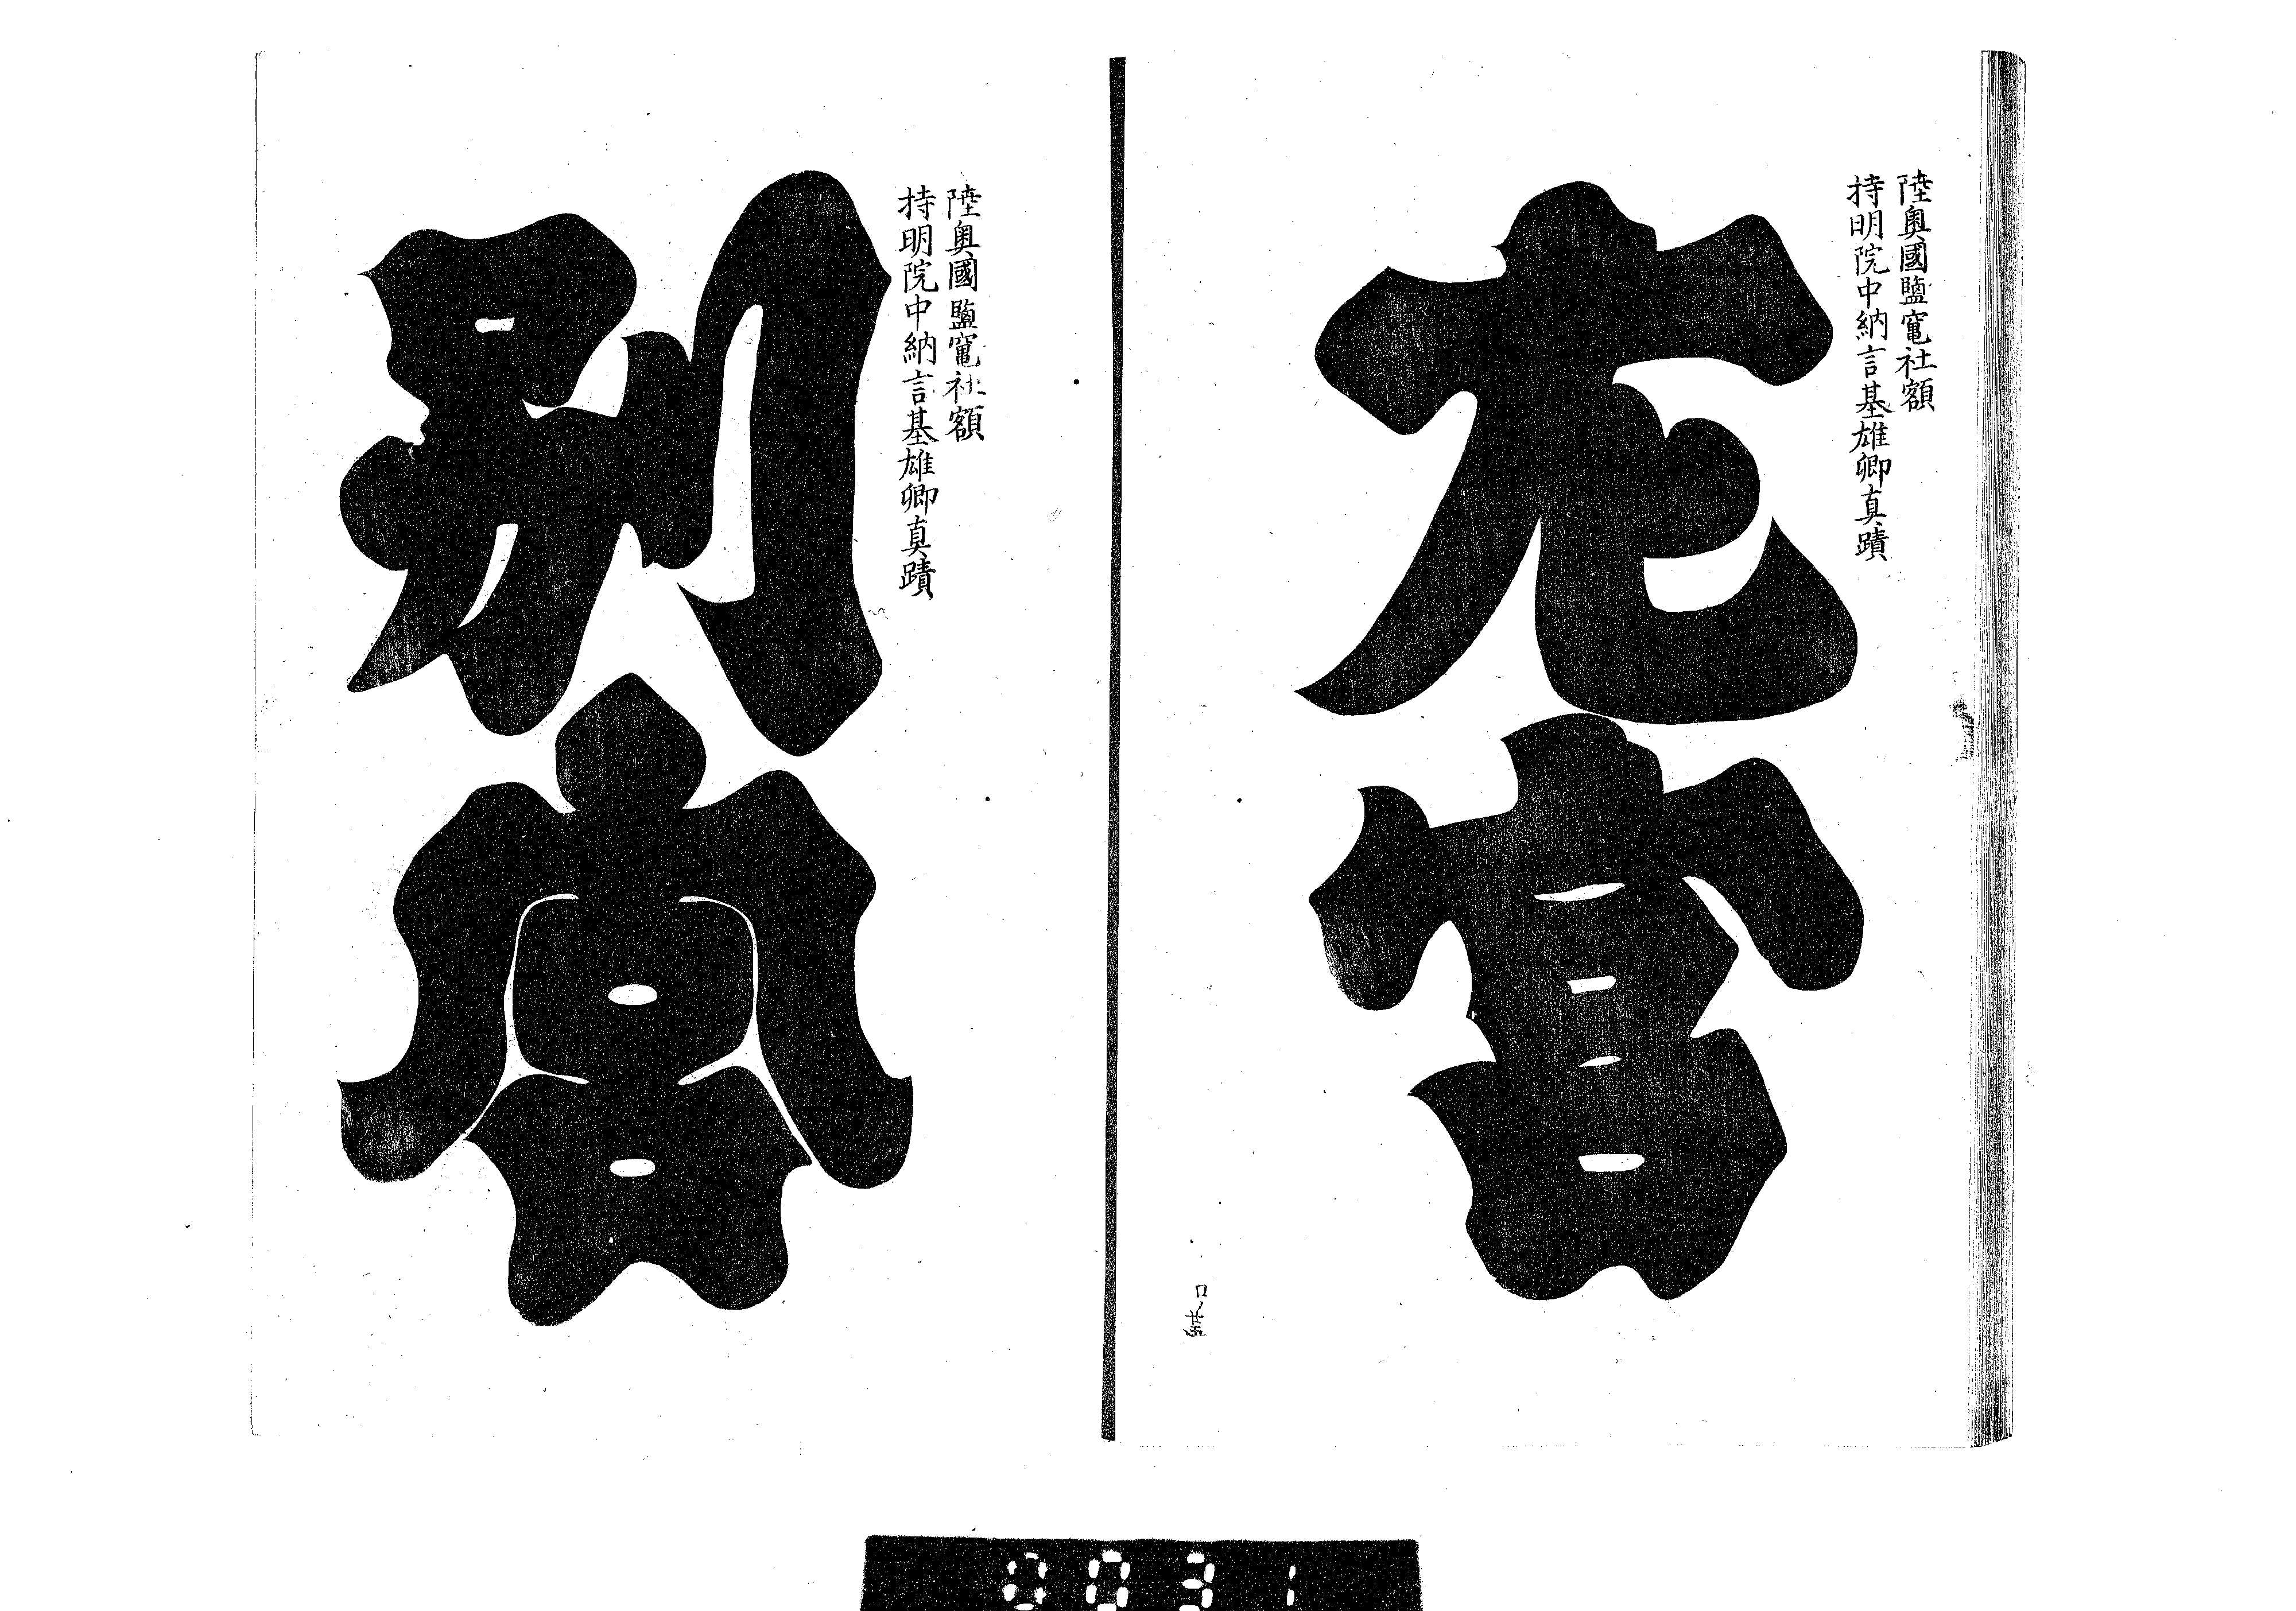 陸奥國鹽竈社額
持明院中納言基雄卿真蹟
左宮
陸奥國鹽竈社額
持明院中納言基雄卿真蹟
別宮
0031